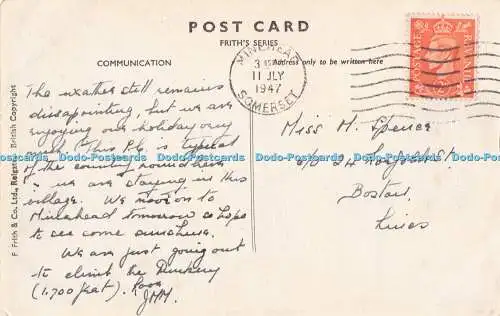 POST CARD
FRITH'S SERIES
COMMUNICATION
Address only to be written here
MINEHEAD
3
11 JLY
1947
SOMERSET
POSTAGE
REVENUE
The weather still remains
disappointing, but we are
enjoying our holiday very
much. This P.C. is typical
of the country round here
& we are staying in this
village. We move on to
Minehead tomorrow & hope
to see some sunshine.
We are just going out
to climb the Dunkery
(1,700 feet).
JMM.
Miss M. Spence
c/o 94
Boston,
Lincs
F. Frith & Co., Ltd., Reigate. British Copyright
Dodo-Postcards Dodo-Postcards Dodo-Postcards Dodo-Postcards Dodo-Postcards